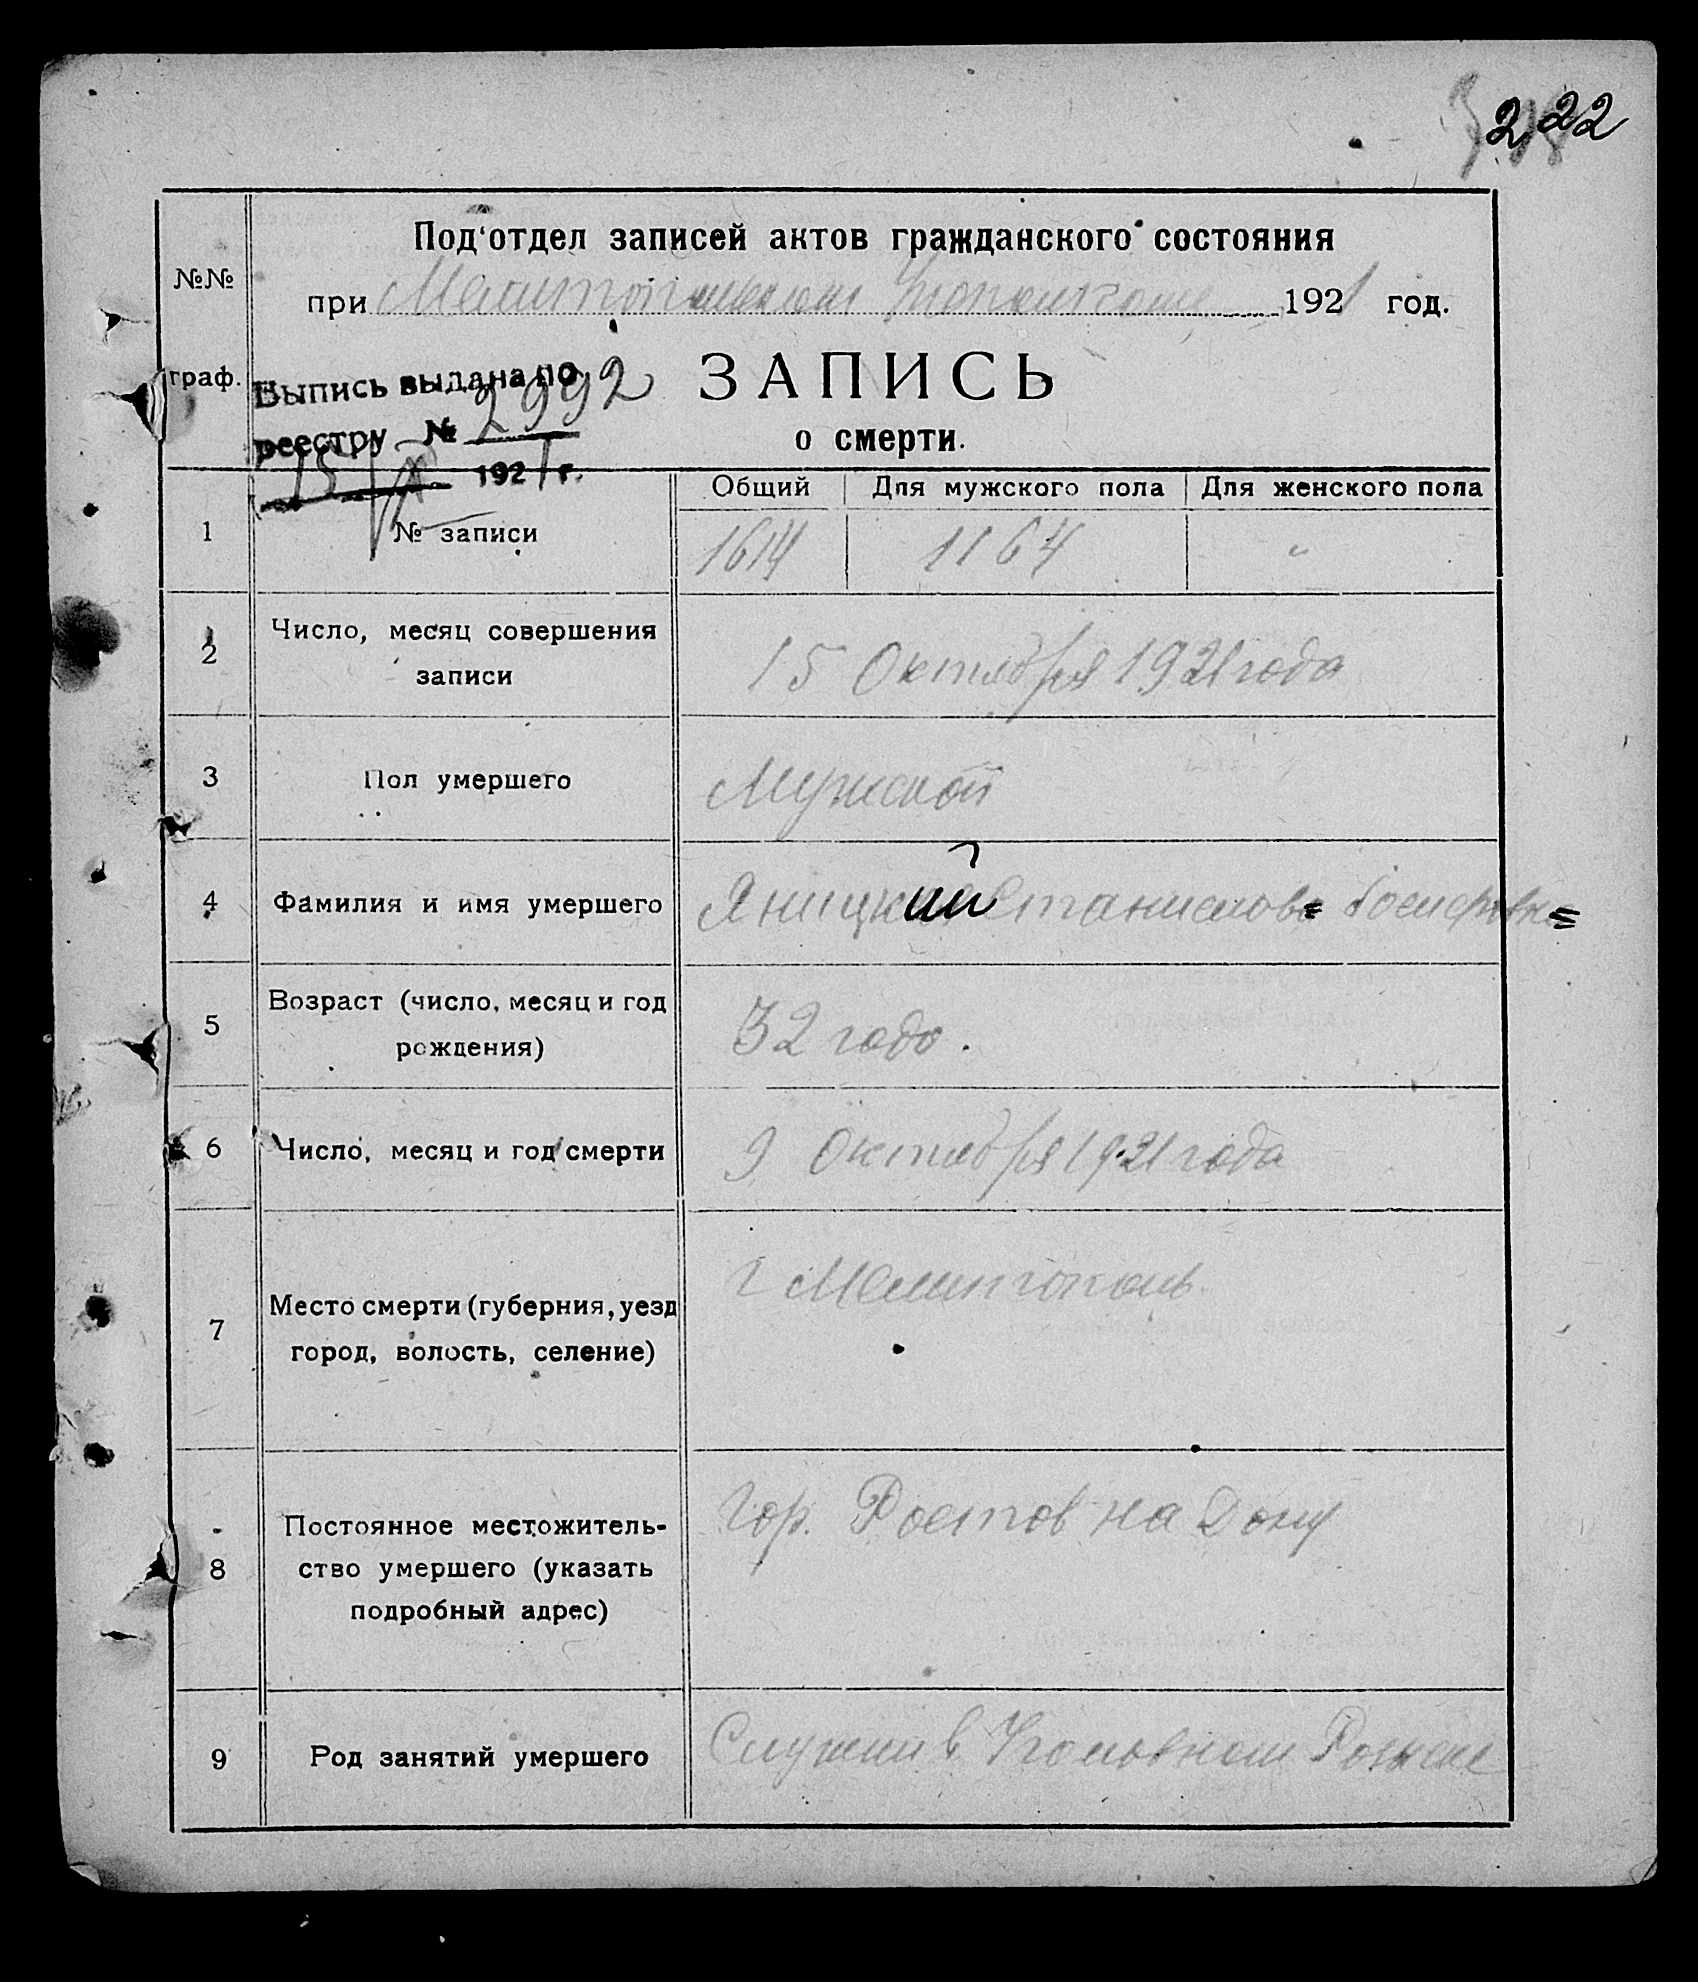 222
Под'отдел записей актов гражданского состояния
№№
при Мелитопольском Исполкоме 1921 год.
граф.
Выпись выдана по
реестру № 2992
15/X 1921 г.
ЗАПИСЬ
о смерти.
Общий Для мужского пола Для женского пола
1 № записи 1614 1164 "
2 Число, месяц совершения
записи
15 Октября 1921 года
3 Пол умершего Мужской
4 Фамилия и имя умершего Яницкий Станислов Иосифов
5 Возраст (число, месяц и год
рождения)
32 года.
6 Число, месяц и год смерти 9 Октября 1921 года
7 Место смерти (губерния, уезд
город, волость, селение)
г Мелитополь
8 Постоянное местожитель-
ство умершего (указать
подробный адрес)
Гор. Ростов на Дону
9 Род занятий умершего Служил в Уголовном Розыске